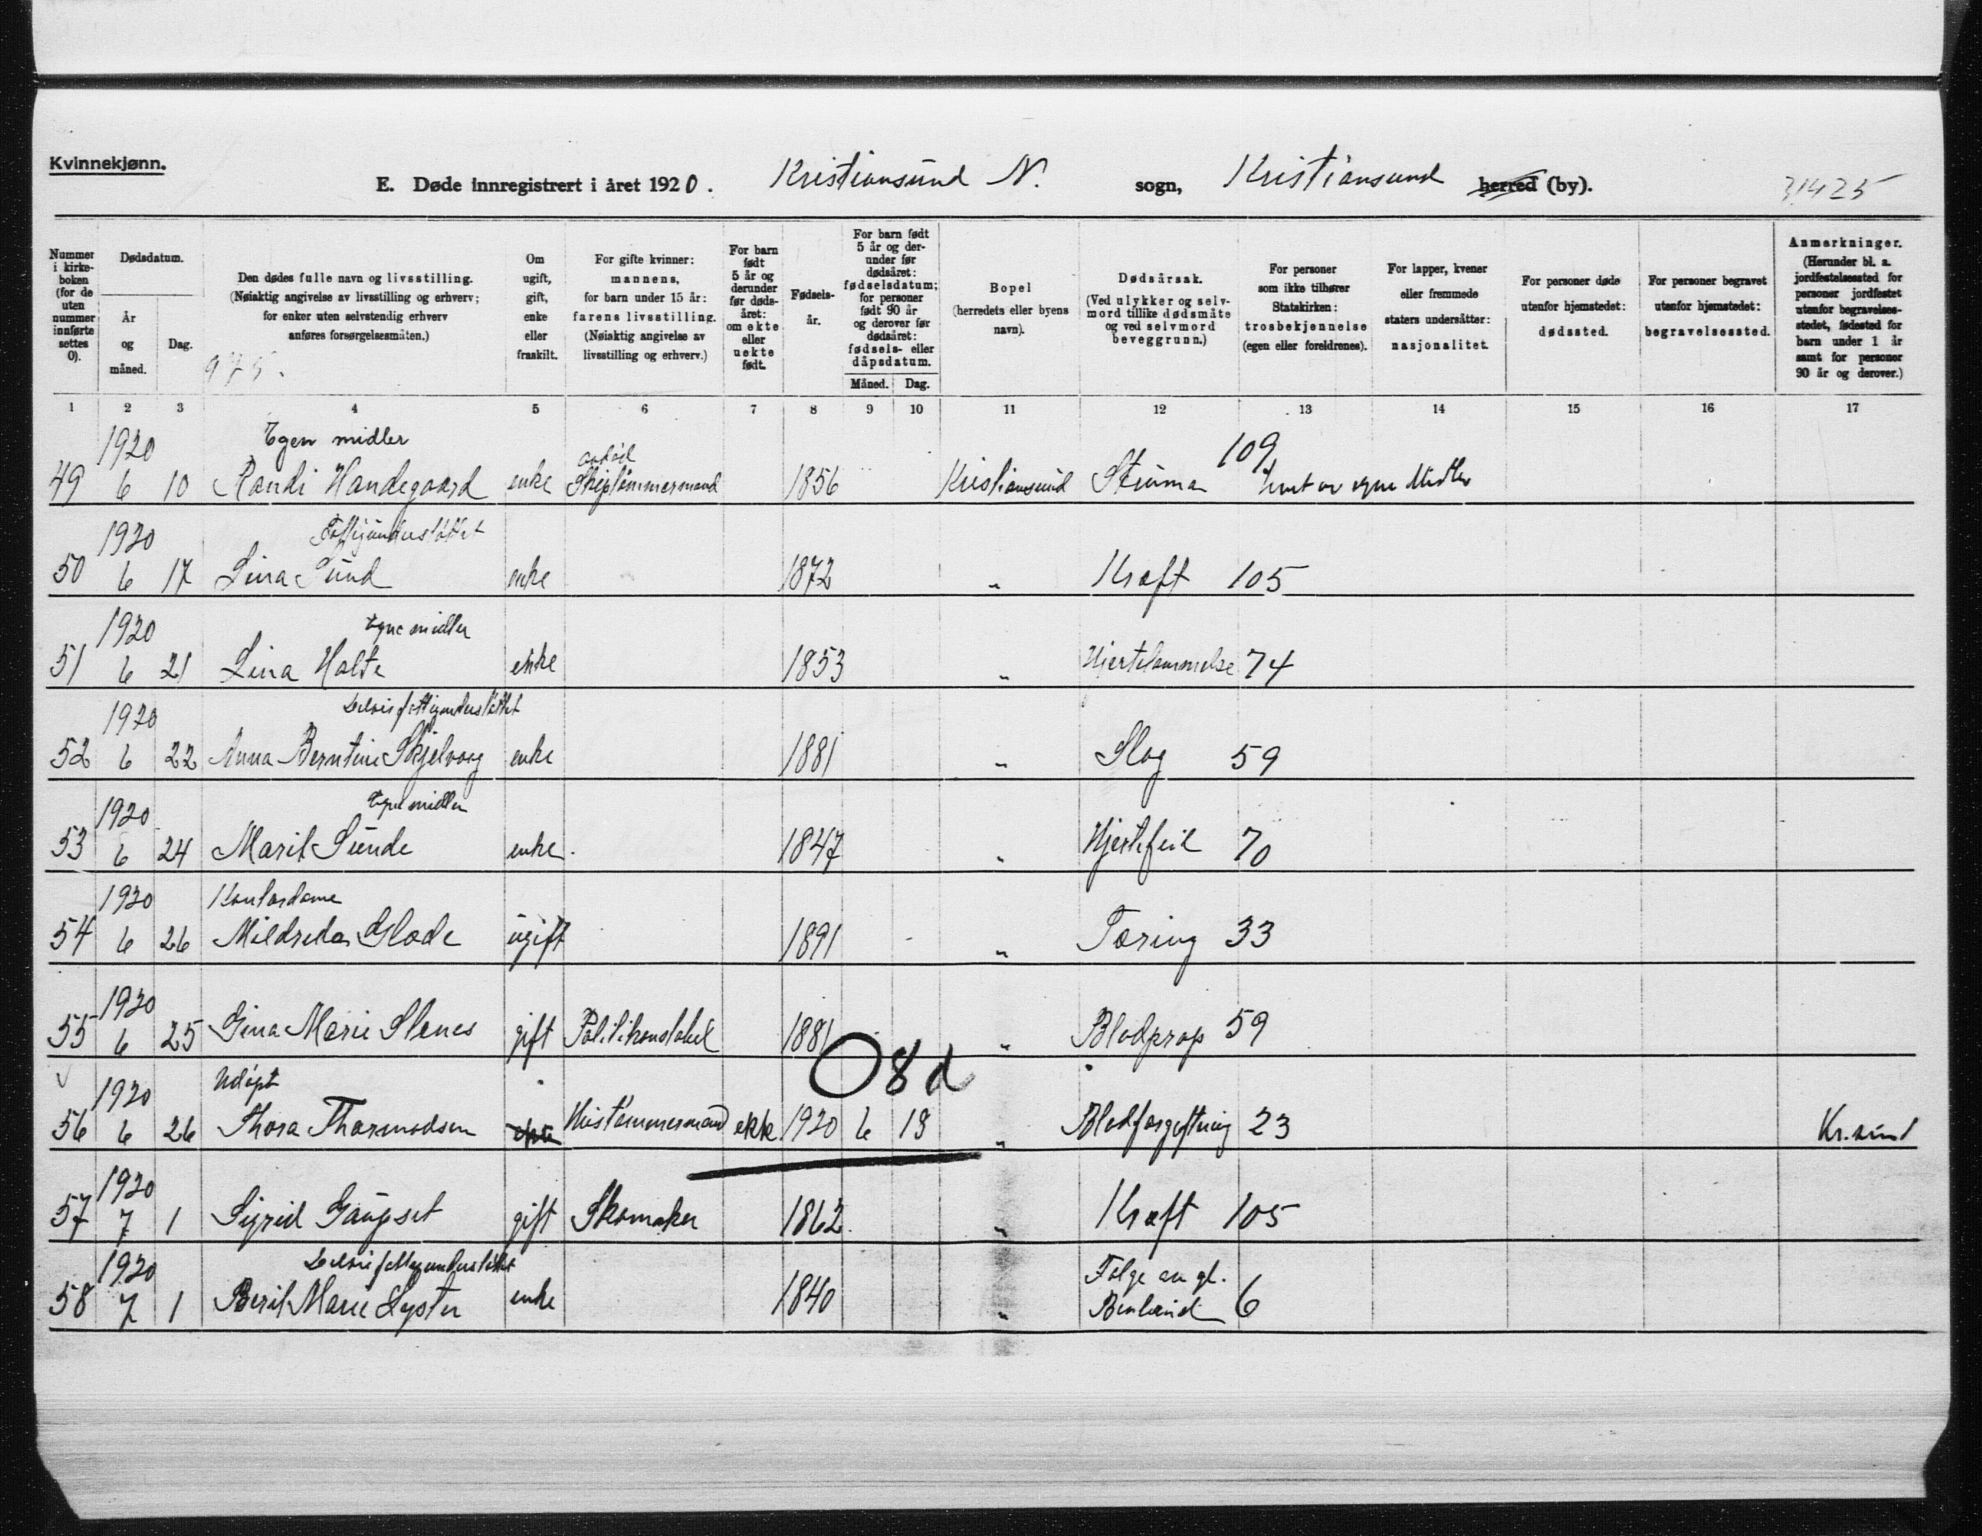 Kvinnekjønn.
E. Døde innregistrert i året 1920. Kristiansund N. sogn, Kristiansund herred (by). 31425
Nummer i kirkeboken (for de uten nummer innførte settes 0).
Dødsdatum.
År og måned.
Dag.
Den dødes fulle navn og livsstilling. (Nøiaktig angivelse av livsstilling og erhverv; for enker uten selvstendig erhverv anføres forsørgelsesmåten.)
975.
Om ugift, gift, enke eller fraskilt.
For gifte kvinner: mannens, for barn under 15 år: farens livsstilling. (Nøiaktig angivelse av livsstilling og erhverv.)
For barn født 5 år og derunder før dødsåret: om ekte eller uekte født.
Fødselsår.
For barn født 5 år og derunder før dødsåret: fødselsdatum; for personer født 90 år og derover før dødsåret: fødsels- eller dåpsdatum.
Måned. Dag.
Bopel (herredets eller byens navn).
Dødsårsak. (Ved ulykker og selvmord tillike dødsmåte og ved selvmord beveggrunn.)
For personer som ikke tilhører Statskirken: trosbekjennelse (egen eller foreldrenes).
For lapper, kvener eller fremmede staters undersåtter: nasjonalitet.
For personer døde utenfor hjemstedet: dødssted.
For personer begravet utenfor hjemstedet: begravelsessted.
Anmerkninger. (Herunder bl. a. jordfestelsessted for personer jordfestet utenfor begravelsesstedet, fødested for barn under 1 år samt for personer 90 år og derover.)
1 2 3 4 5 6 7 8 9 10 11 12 13 14 15 16 17
1920 Egen midler avdød 109
49 6 10 Randi Handegaard enke Skipstømmermand 1856 Kristiansund Struma
1920 Fattigunderstøttet
50 6 17 Lina Sund enke 1872 " Kræft 105
1920 Egne midler
51 6 21 Lina Holte enke 1853 " Hjertelammelse 74
1920 Delvis fattigunderstøttet
52 6 22 Anna Berntine Skjelvaag enke 1881 " Slag 59
1920 Egne midler
53 6 24 Marit Sunde enke. 1847 " Hjertefeil 70
1920 Kontordame
54 6 26 Mildreda Glade ugift 1891 " Tæring 33
1920
55 6 25 Gina Marie Stenes gift Politikonstabel 1881 " Blodprop 59
O 8 d
1920 Udøpt
56 6 26 Thora Thormodsen Hustømmermand ekte 1920 6 18 " Blodforgiftning 23 Kr.sund
1920
57 7 1 Sigrid Gaupset gift Skomaker 1862 " Kræft 105
1920 Delvis fattigunderstøttet Følge av gl.
58 7 1 Berit Marie Lyster enke 1840 " Benbrud 6